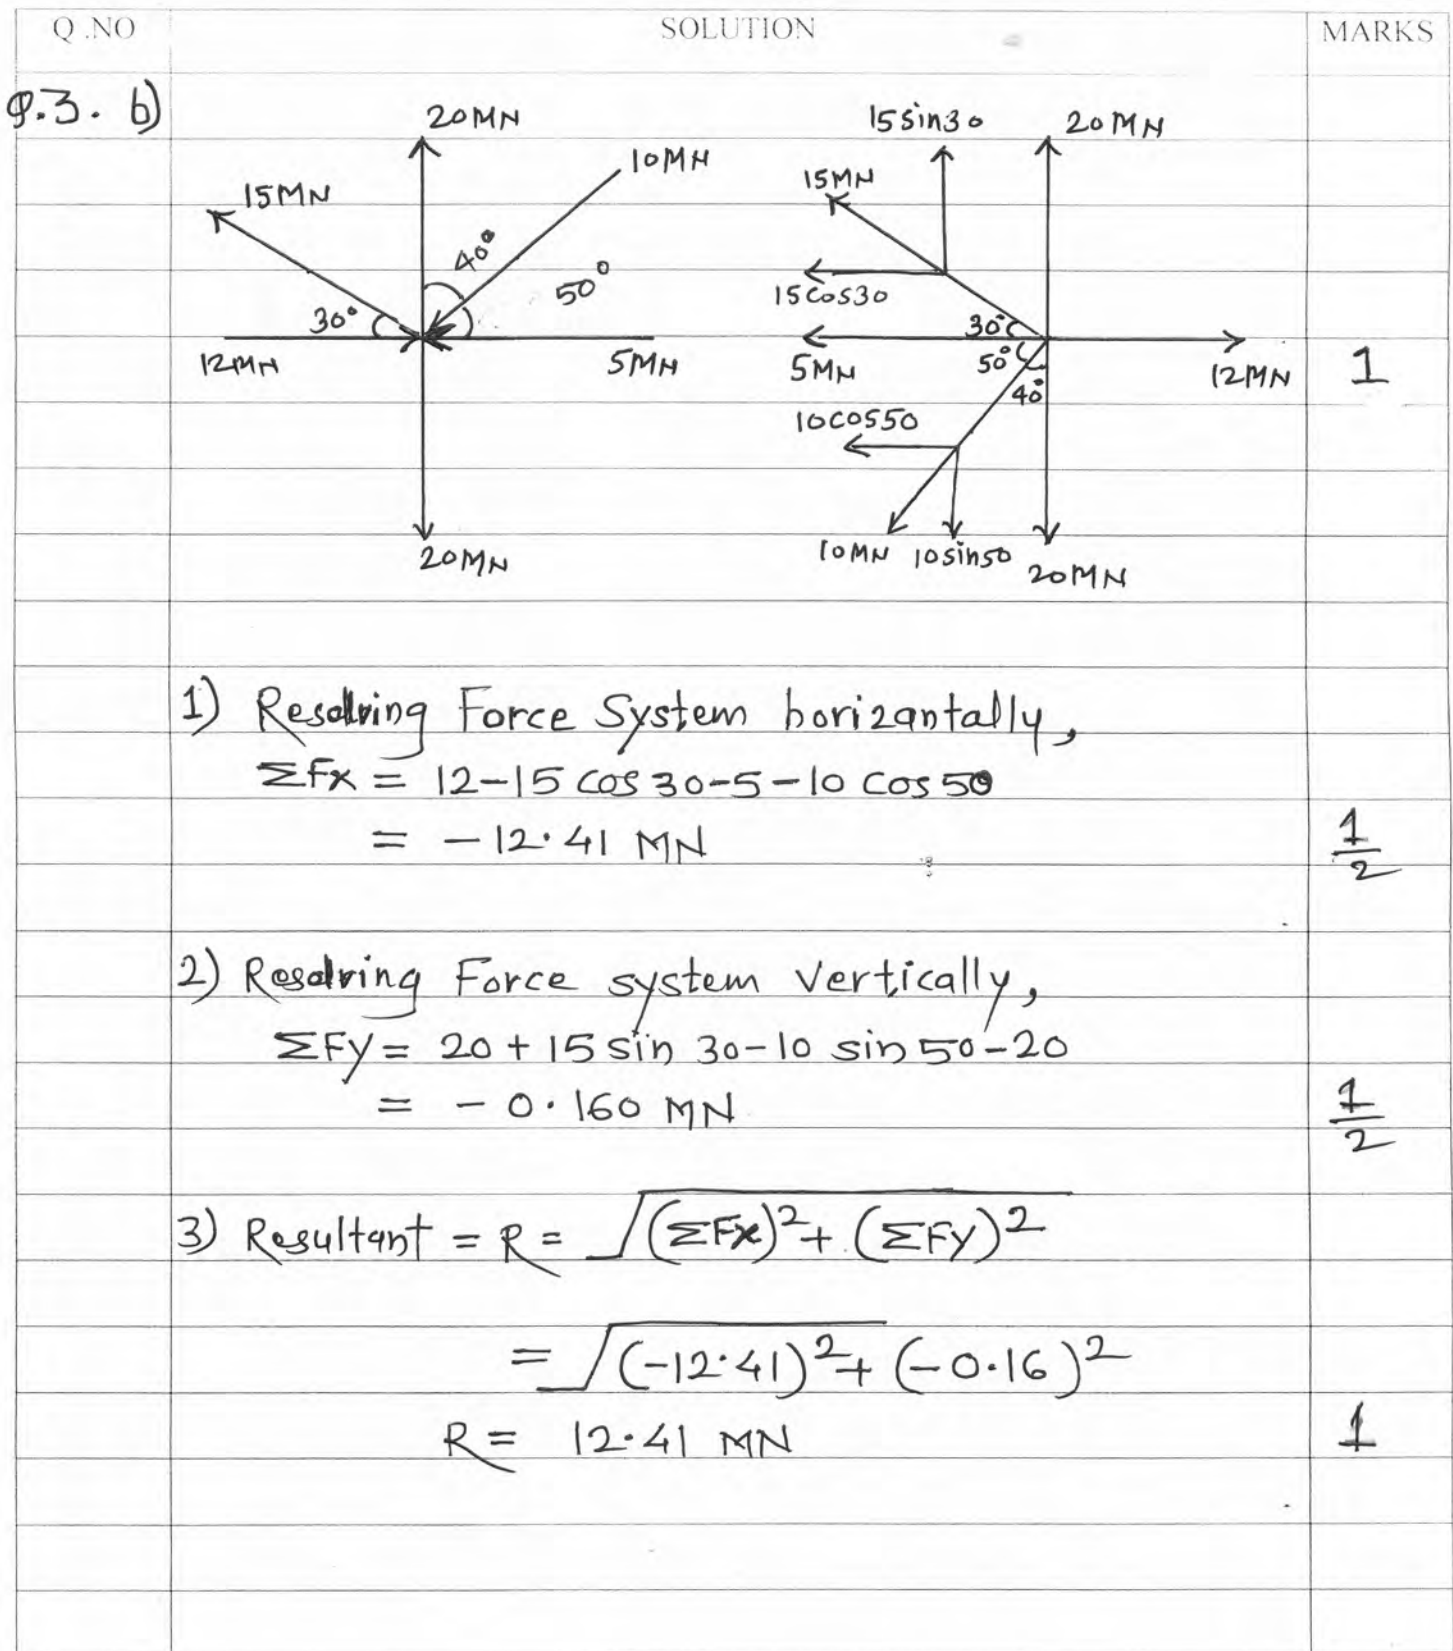 Q.NO SOLUTION MARKS
Q.3. b)
20MN
10MN
15MN
40°
50°
30°
12MN
5MN
20MN
15sin30
20MN
15MN
15cos30
30°
5MN
50°
40°
12MN
1
10cos50
10MN 10sin50
20MN
1) Resolving Force System horizontally,
ΣFx = 12-15 cos 30-5-10 cos 50
= -12.41 MN
1/2
2) Resolving Force system Vertically,
ΣFy = 20+15 sin 30-10 sin 50-20
= -0.160 MN
1/2
3) Resultant = R = √(ΣFx)²+(ΣFy)²
= √(-12.41)²+(-0.16)²
R = 12.41 MN
1